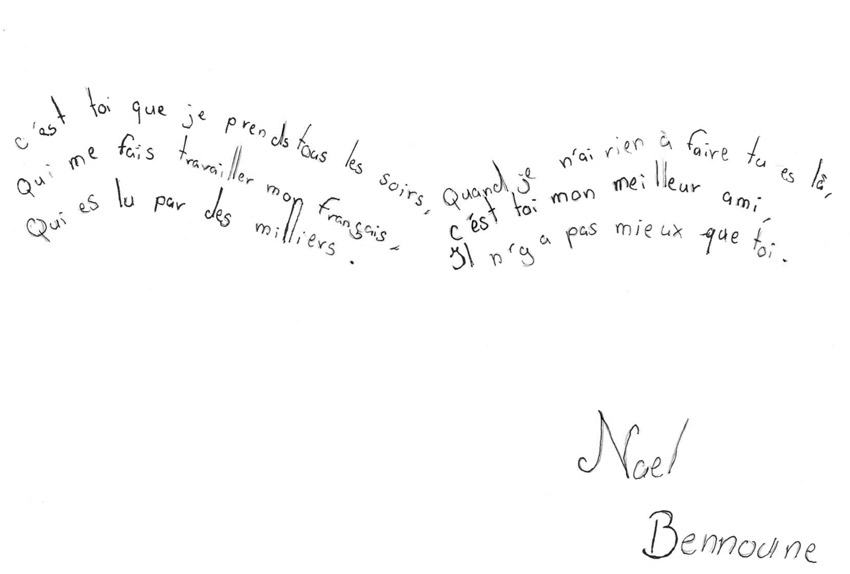 c'est toi que je prends tous les soirs,
Qui me fais travailler mon français,
Qui es lu par des milliers.
Quand je n'ai rien à faire tu es là,
c'est toi mon meilleur ami,
Il n'y a pas mieux que toi.
Nael
Bennoune